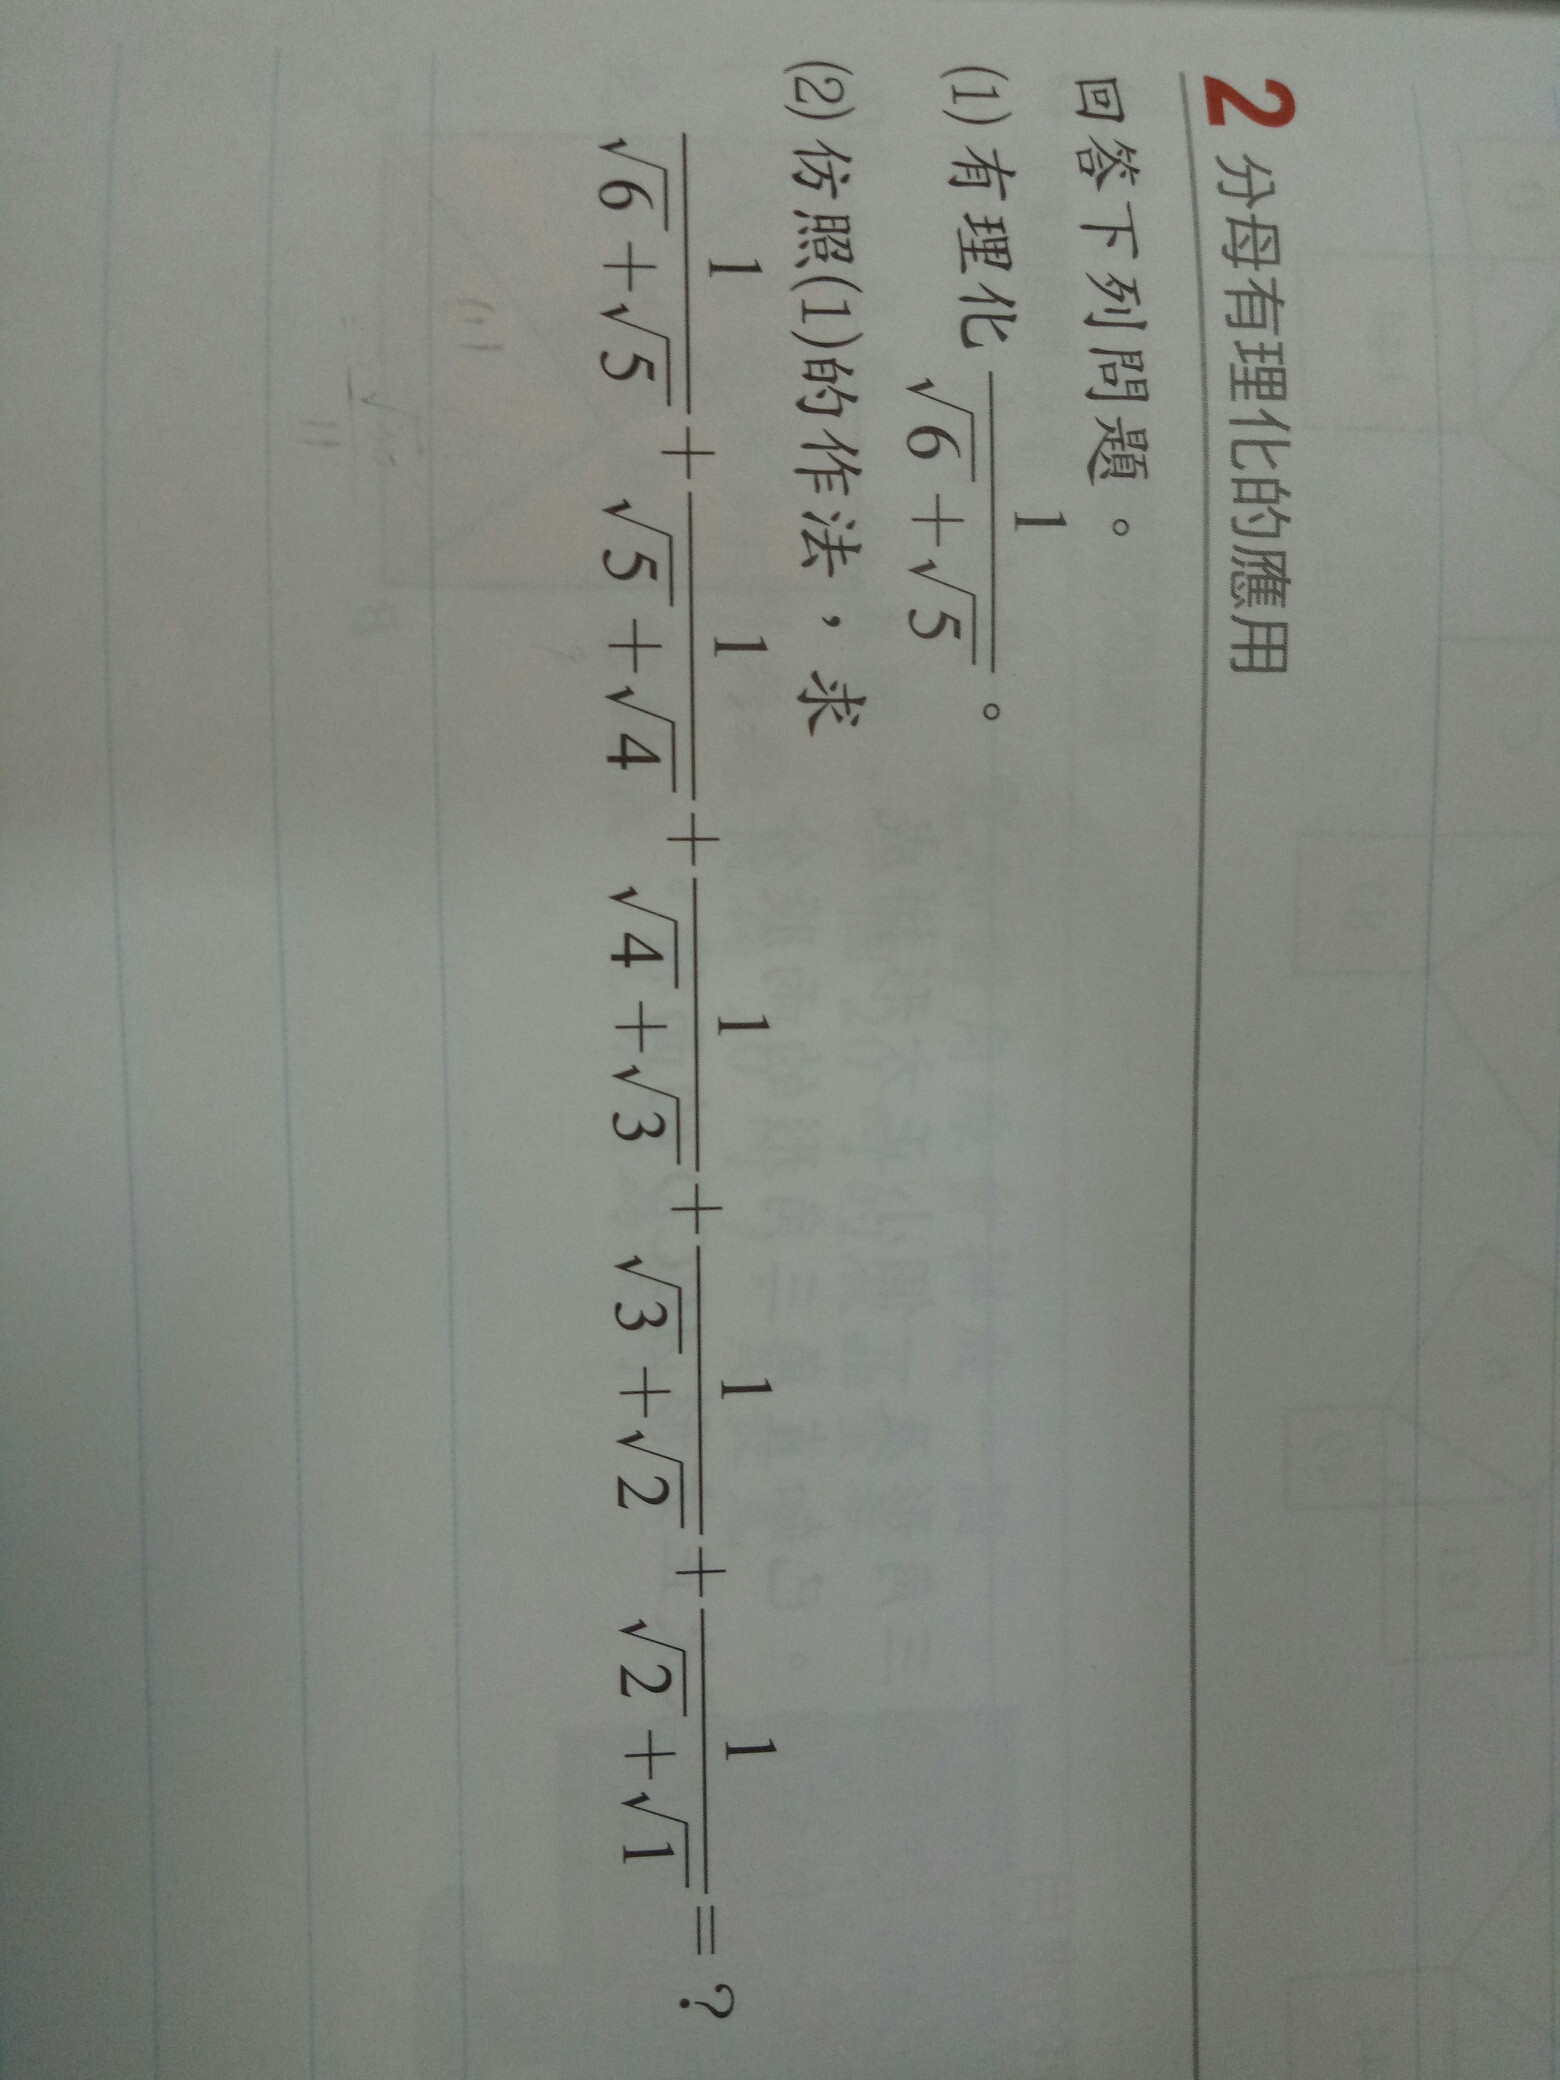 2 分母有理化的應用
回答下列問題。
(1) 有理化 1/(√6+√5)。
(2) 仿照(1)的作法，求
1/(√6+√5) + 1/(√5+√4) + 1/(√4+√3) + 1/(√3+√2) + 1/(√2+√1) = ?